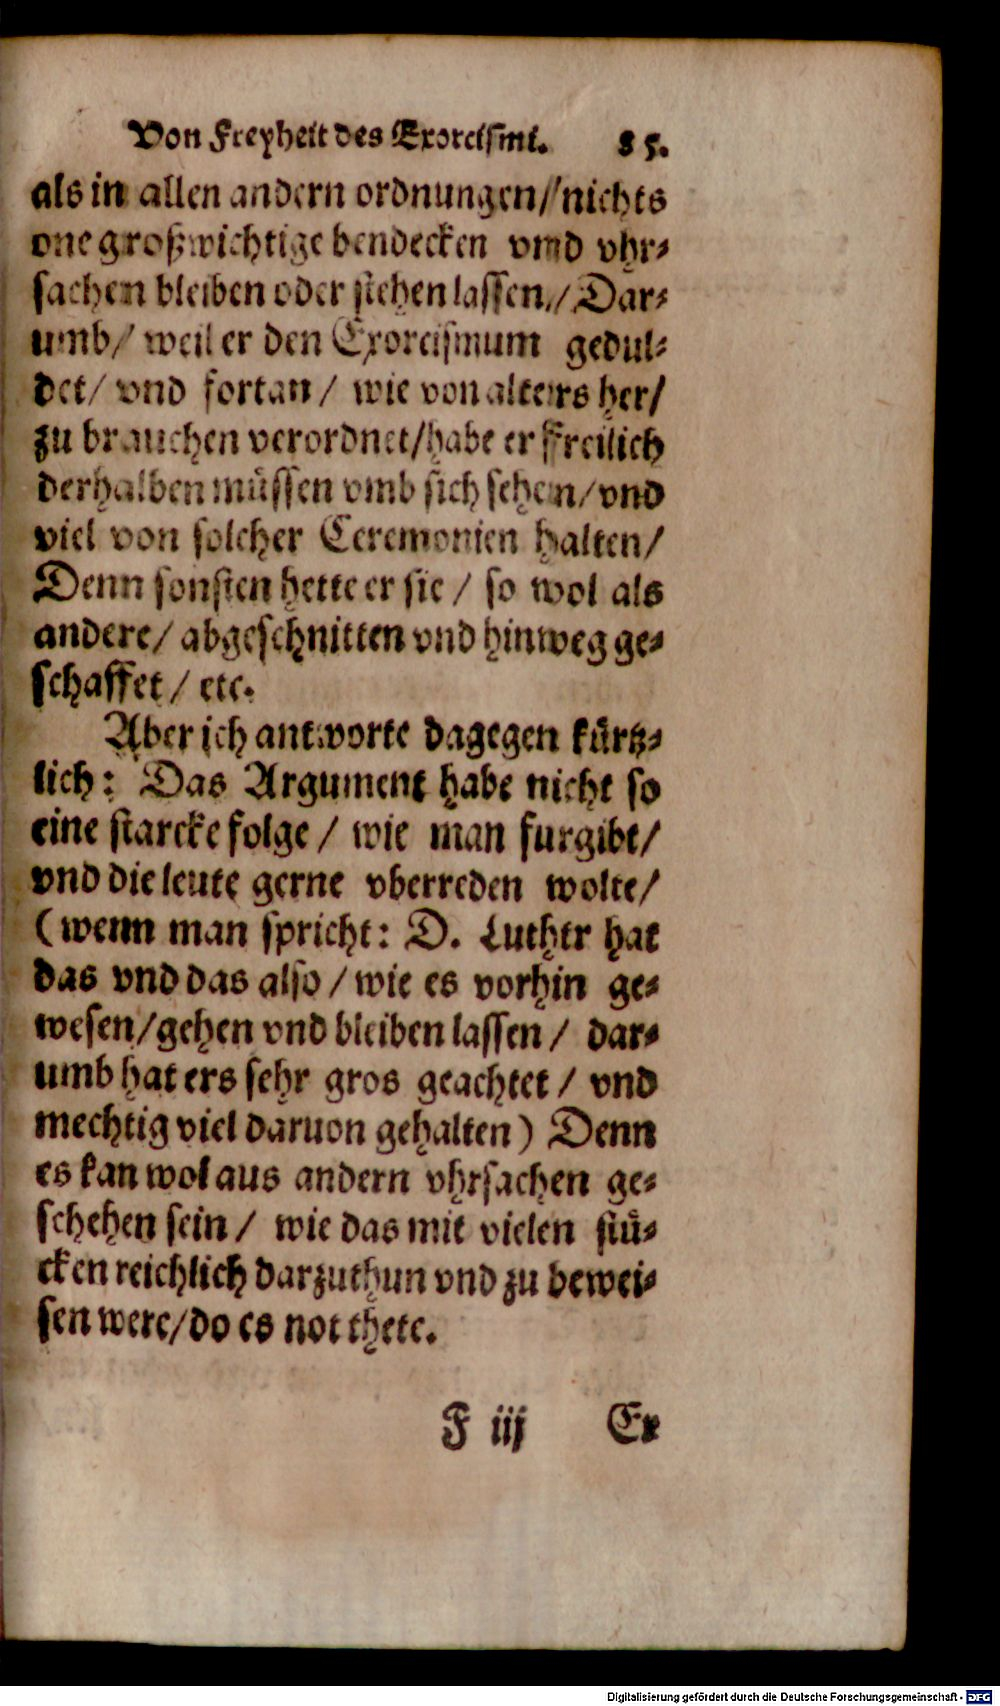 Von Freyheit des Exorcismi. 85.
als in allen andern ordnungen/ nichts
one großwichtige bendecken vnd vhr⸗
sachen bleiben oder stehen lassen/ Dar⸗
umb/ weil er den Exorcismum gedul⸗
det/ vnd fortan/ wie von alters her/
zu brauchen verordnet/habe er freilich
derhalben müssen vmb sich sehen/vnd
viel von solcher Ceremonien halten/
Denn sonsten hette er sie/ so wol als
andere/ abgeschnitten vnd hinweg ge⸗
schaffet/ etc.
Aber ich antworte dagegen kürtz⸗
lich: Das Argument habe nicht so
eine starcke folge/ wie man furgibt/
vnd die leute gerne vberreden wolte/
(wenn man spricht: D. Luther hat
das vnd das also/ wie es vorhin ge⸗
wesen/gehen vnd bleiben lassen/ dar⸗
umb hat ers sehr gros geachtet/ vnd
mechtig viel daruon gehalten) Denn
es kan wol aus andern vhrsachen ge⸗
schehen sein/ wie das mit vielen stü⸗
cken reichlich darzuthun vnd zu bewei⸗
sen were/do es not thete.
F iij Ex
Digitalisierung gefördert durch die Deutsche Forschungsgemeinschaft - DFG